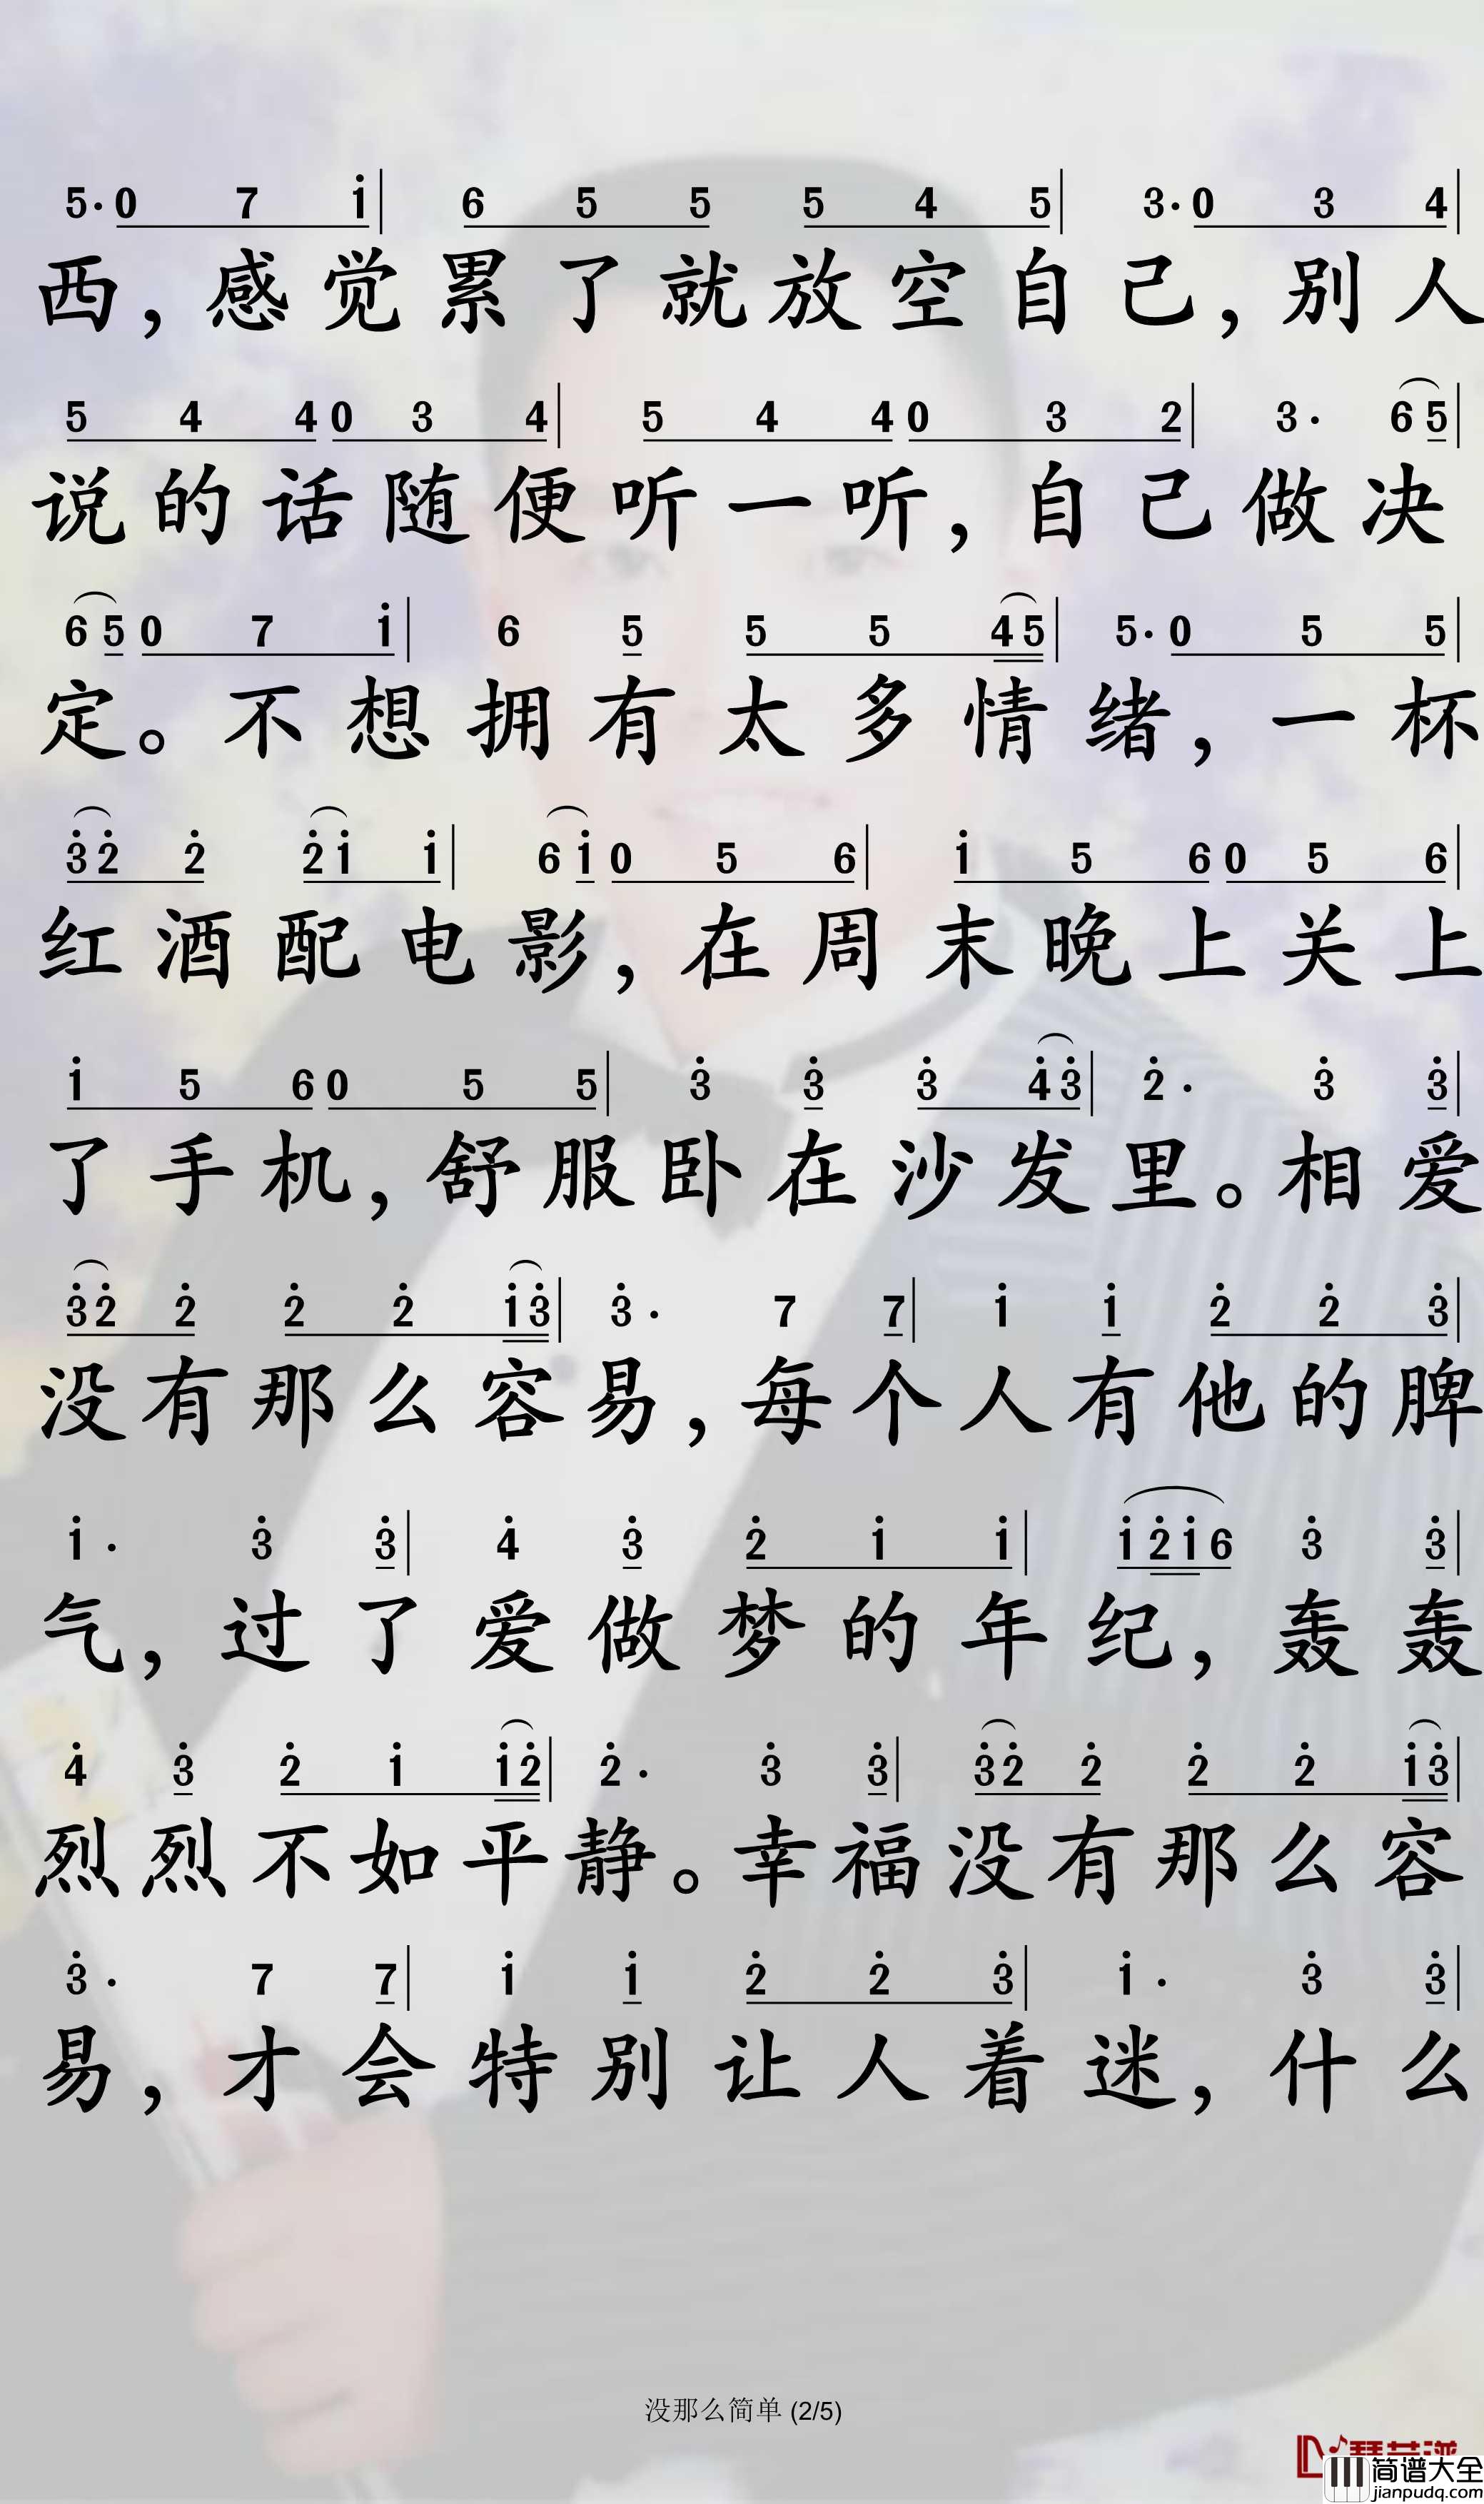 5·0 7 i | 6 5 5 5 4 5 | 3·0 3 4 |
西，感觉累了就放空自己，别人
5 4 4 0 3 4 | 5 4 4 0 3 2 | 3· 6 5 |
说的话随便听一听，自己做决
6 5 0 7 i | 6 5 5 5 4 5 | 5·0 5 5 |
定。不想拥有太多情绪，一杯
3̇ 2̇ 2̇ 2̇ i i | 6 i 0 5 6 | i 5 6 0 5 6 |
红酒配电影，在周末晚上关上
i 5 6 0 5 5 | 3̇ 3̇ 3̇ 4̇ 3̇ | 2̇· 3̇ 3̇ |
了手机，舒服卧在沙发里。相爱
3̇ 2̇ 2̇ 2̇ 2̇ i 3̇ | 3̇· 7 7 | i i 2̇ 2̇ 3̇ |
没有那么容易，每个人有他的脾
i· 3̇ 3̇ | 4̇ 3̇ 2̇ i i | i 2̇ i 6 3̇ 3̇ |
气，过了爱做梦的年纪，轰轰
4̇ 3̇ 2̇ i i 2̇ | 2̇· 3̇ 3̇ | 3̇ 2̇ 2̇ 2̇ 2̇ i 3̇ |
烈烈不如平静。幸福没有那么容
3̇· 7 7 | i i 2̇ 2̇ 3̇ | i· 3̇ 3̇ |
易，才会特别让人着迷，什么
没那么简单 (2/5)
简谱大全
jianpudq.com